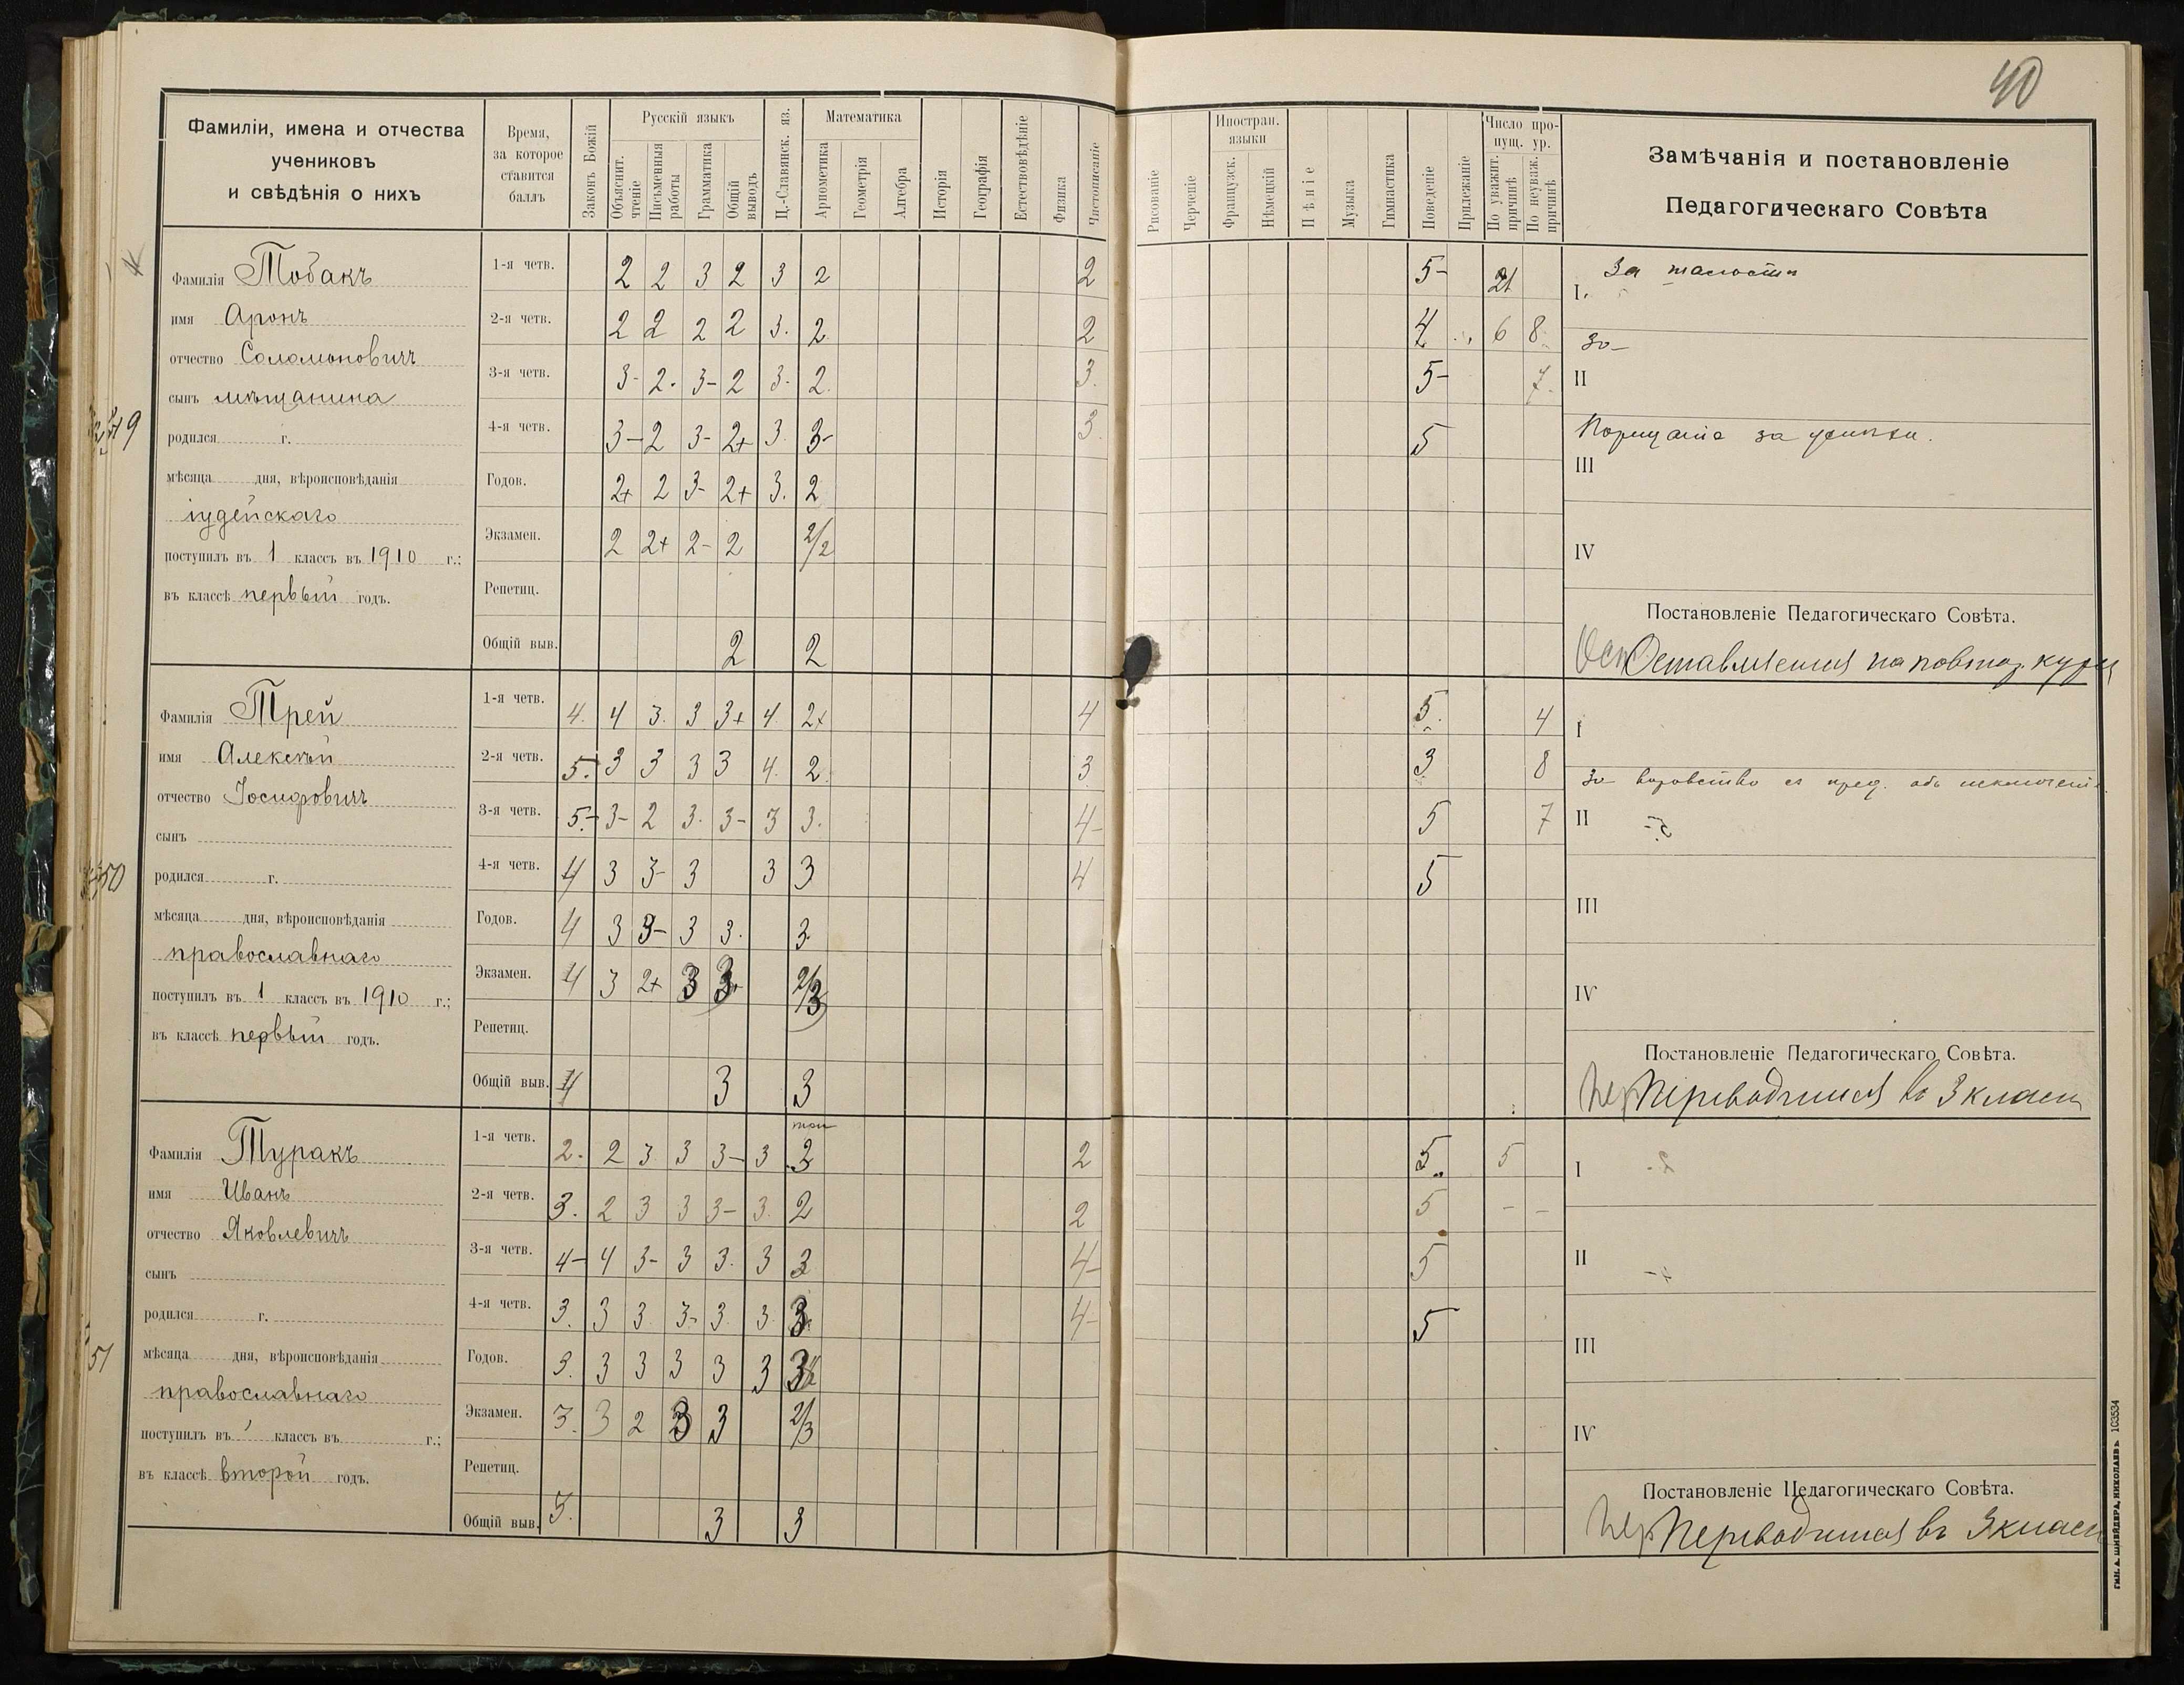 40
Фамиліи, имена и отчества
учениковъ
и свѣдѣнія о нихъ
Время,
за которое
ставится
баллъ
Законъ Божій
Русскій языкъ
Объяснит. чтеніе
Письменныя работы
Грамматика
Общій выводъ
Ц.-Славянск. яз.
Математика
Ариѳметика
Геометрія
Алгебра
Исторія
Географія
Естествовѣдѣніе
Физика
Чистописаніе
Рисованіе
Черченіе
Иностран.
языки
Французск.
Нѣмецкій
Пѣніе
Музыка
Гимнастика
Поведеніе
Прилежаніе
Число про-
пущ. ур.
По уважит. причинѣ
По неуваж. причинѣ
Замѣчанія и постановленіе
Педагогическаго Совѣта
Фамилія Тобакъ
имя Аронъ
отчество Соломоновичъ
сынъ мѣщанина
родился г.
мѣсяца дня, вѣроисповѣданія
іудейскаго
поступилъ въ 1 классъ въ 1910 г.;
въ классѣ первый годъ.
1-я четв. 2 2 3 2 3 2 2 5- 21
2-я четв. 2 2 2 2 3. 2. 2 4 6 8
3-я четв. 3- 2. 3- 2 3. 2. 3. 5- 7.
4-я четв. 3- 2 3- 2+ 3. 3- 3. 5
Годов. 2+ 2 3- 2+ 3. 2
Экзамен. 2 2+ 2- 2 2/2
Репетиц.
Общій выв. 2 2
I. За шалости
За
II
Порицаніе за успѣхи.
III
IV
Постановленіе Педагогическаго Совѣта.
Ост Оставляется на повтор. курсъ
Фамилія Трей
имя Алексѣй
отчество Іосифовичъ
сынъ
50
родился г.
мѣсяца дня, вѣроисповѣданія
православнаго
поступилъ въ 1 классъ въ 1910 г.;
въ классѣ первый годъ.
1-я четв. 4. 4 3. 3 3+ 4. 2+ 4 5. 4
2-я четв. 5. 3 3 3 3 4. 2. 3 3 8
3-я четв. 5- 3- 2 3. 3- 3 3. 4- 5 7
4-я четв. 4 3 3- 3 3 3 4 5
Годов. 4 3 3- 3 3. 3.
Экзамен. 4 3 2+ 3 3 2/3
Репетиц.
Общій выв. 4 3 3
I
За воровство съ пред. объ исключеніи
II
III
IV
Постановленіе Педагогическаго Совѣта.
Пер Переводится въ 3 классъ
Фамилія Туракъ
имя Иванъ
отчество Яковлевичъ
сынъ
родился г.
51
мѣсяца дня, вѣроисповѣданія
православнаго
поступилъ въ классъ въ г.;
въ классѣ второй годъ.
1-я четв. 2. 2 3 3 3- 3 2 5. 5
2-я четв. 3. 2 3 3 3- 3. 2 2 5 - -
3-я четв. 4- 4 3- 3 3. 3 3 4- 5
4-я четв. 3. 3 3 3- 3. 3. 3 4- 5
Годов. 3. 3 3 3 3 3 3
Экзамен. 3. 3 2 3 3 2/3
Репетиц.
Общій выв. 3. 3 3
I
II
III
IV
Постановленіе Педагогическаго Совѣта.
Пер Переводится въ 3 классъ
ТИП. А. ШНЕЙДЕРА, НИКОЛАЕВЪ 103534